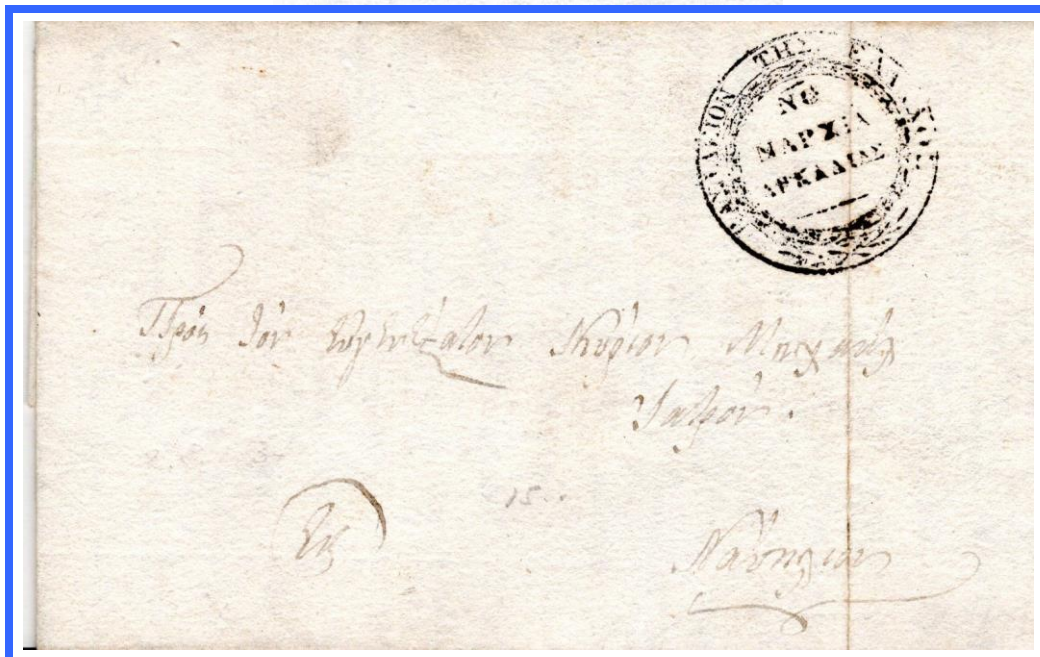 ΒΑΣΙΛΕΙΟΝ ΤΗΣ ΕΛΛΑΔΟΣ
ΝΟ
ΜΑΡΧΙΑ
ΑΡΚΑΔΙΑΣ
Πρὸς τὸν εὐγενέστατον Κύριον Μιχαὴλ
Ἰατρόν.
Εἰς
Ναύπλιον